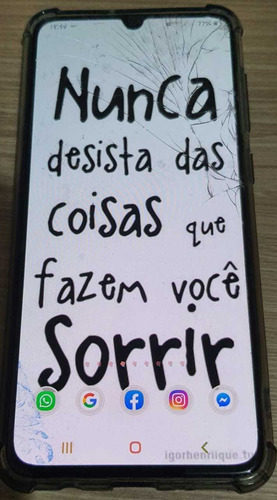 Nunca
desista das
coisas que
fazem você
Sorrir
igorhenriique_tv